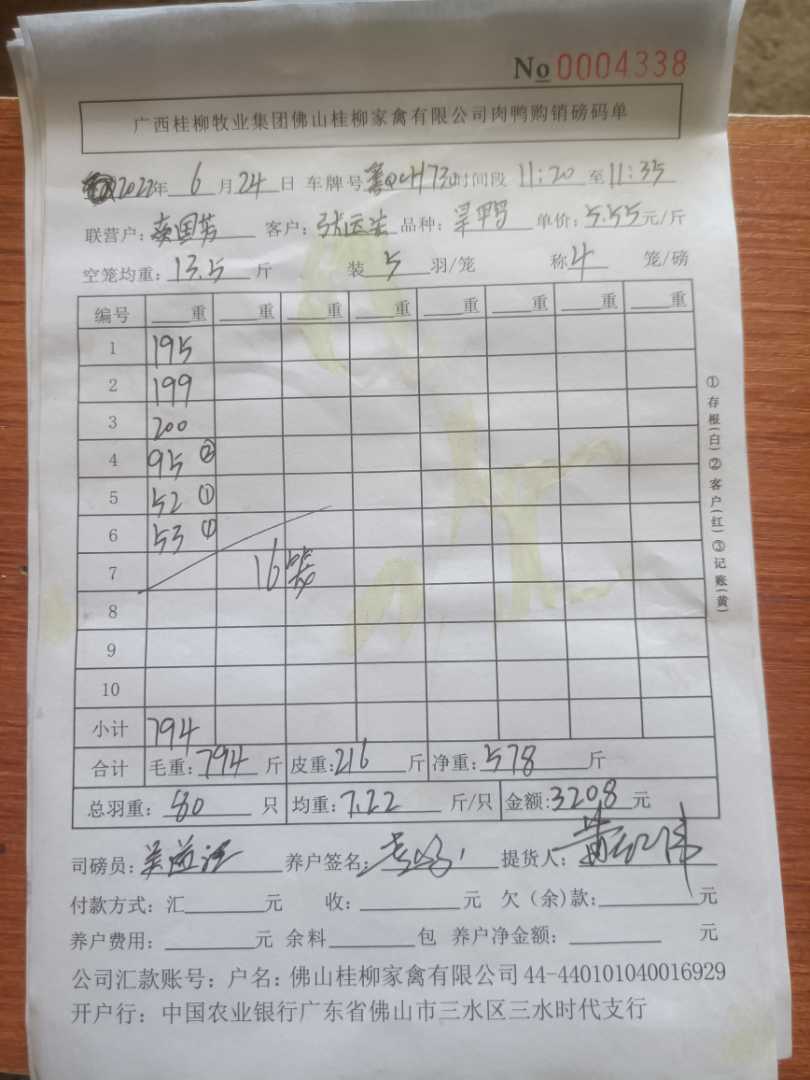 No 0004338
广西桂柳牧业集团佛山桂柳家禽有限公司肉鸭购销磅码单
2022年 6 月 24 日 车牌号 时间段 11:20 至 11:35
联营户: 国芳 客户: 张 品种: 单价: 5.55 元/斤
空笼均重: 13.5 斤 装 5 羽/笼 称 4 笼/磅
编号 重 重 重 重 重 重 重 重
1 195
2 199
3 200
4 95 ②
5 52 ①
6 53 ①
7 16笼
8
9
10
小计 794
合计 毛重: 794 斤 皮重: 216 斤 净重: 578 斤
总羽重: 80 只 均重: 7.22 斤/只 金额: 3208 元
司磅员: 养户签名: 提货人: 黄 伟
付款方式: 汇 元 收: 元 欠(余)款: 元
养户费用: 元 余料 包 养户净金额: 元
公司汇款账号: 户名: 佛山桂柳家禽有限公司 44-440101040016929
开户行: 中国农业银行广东省佛山市三水区三水时代支行
①存根(白)②客户(红)③记账(黄)